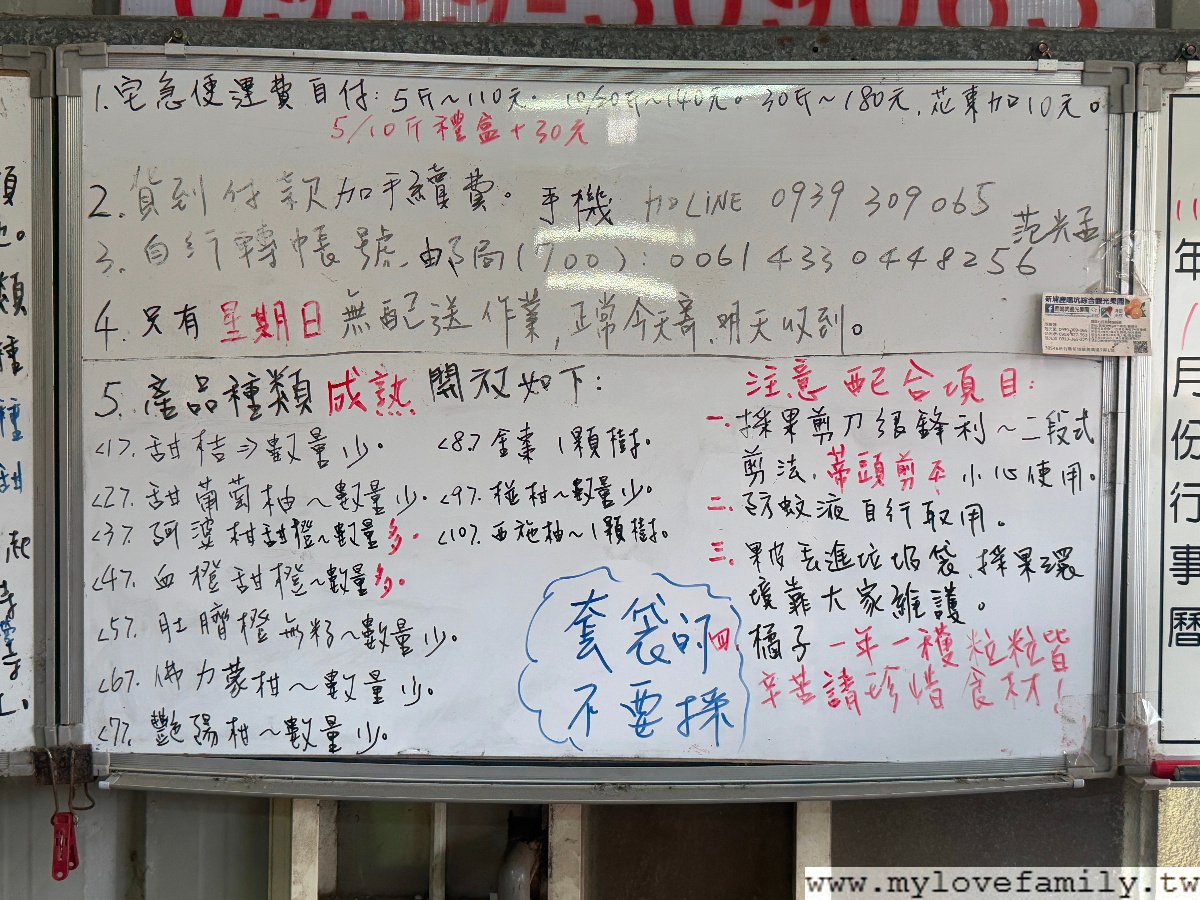 0939-309065
1.宅急便運費自付: 5斤~110元。10/20斤~140元。30斤~180元,花東加10元。
5/10斤禮盒+30元
2.貨到付款加手續費。手機 加LINE 0939 309065
范光孟
3.自行轉帳號,郵局(700):00614330448256
4.只有星期日無配送作業,正常今天寄.明天收到。
5.產品種類成熟開放如下:
<1>.甜桔⇒數量少。
<2>.甜葡萄柚~數量少。
<3>.阿婆柑甜橙~數量多。
<4>.血橙甜橙~數量多。
<5>.肚臍橙無籽~數量少。
<6>.佛力蒙柑~數量少。
<7>.艷陽柑~數量少。
<8>.金棗 1顆樹。
<9>.椪柑~數量少。
<10>.西施柚~1顆樹。
套袋的
不要採
注意配合項目:
一.採果剪刀很鋒利~二段式
剪法,蒂頭剪平 小心使用。
二.防蚊液自行取用。
三.果皮丟進垃圾袋,採果環
境靠大家維護。
四.橘子一年一穫粒粒皆
辛苦請珍惜食材!
年
1
月份行事曆
www.mylovefamily.tw